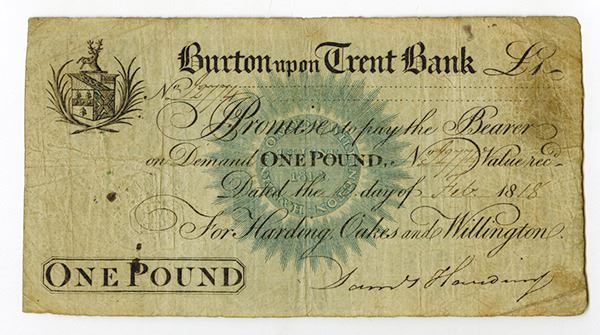 Burton upon Trent Bank £1-
No
I Promise to pay the Bearer
on Demand ONE POUND, No Value rec.d
Dated the day of Feb 1818
For Harding, Oakes and Willington.
ONE POUND
Harding